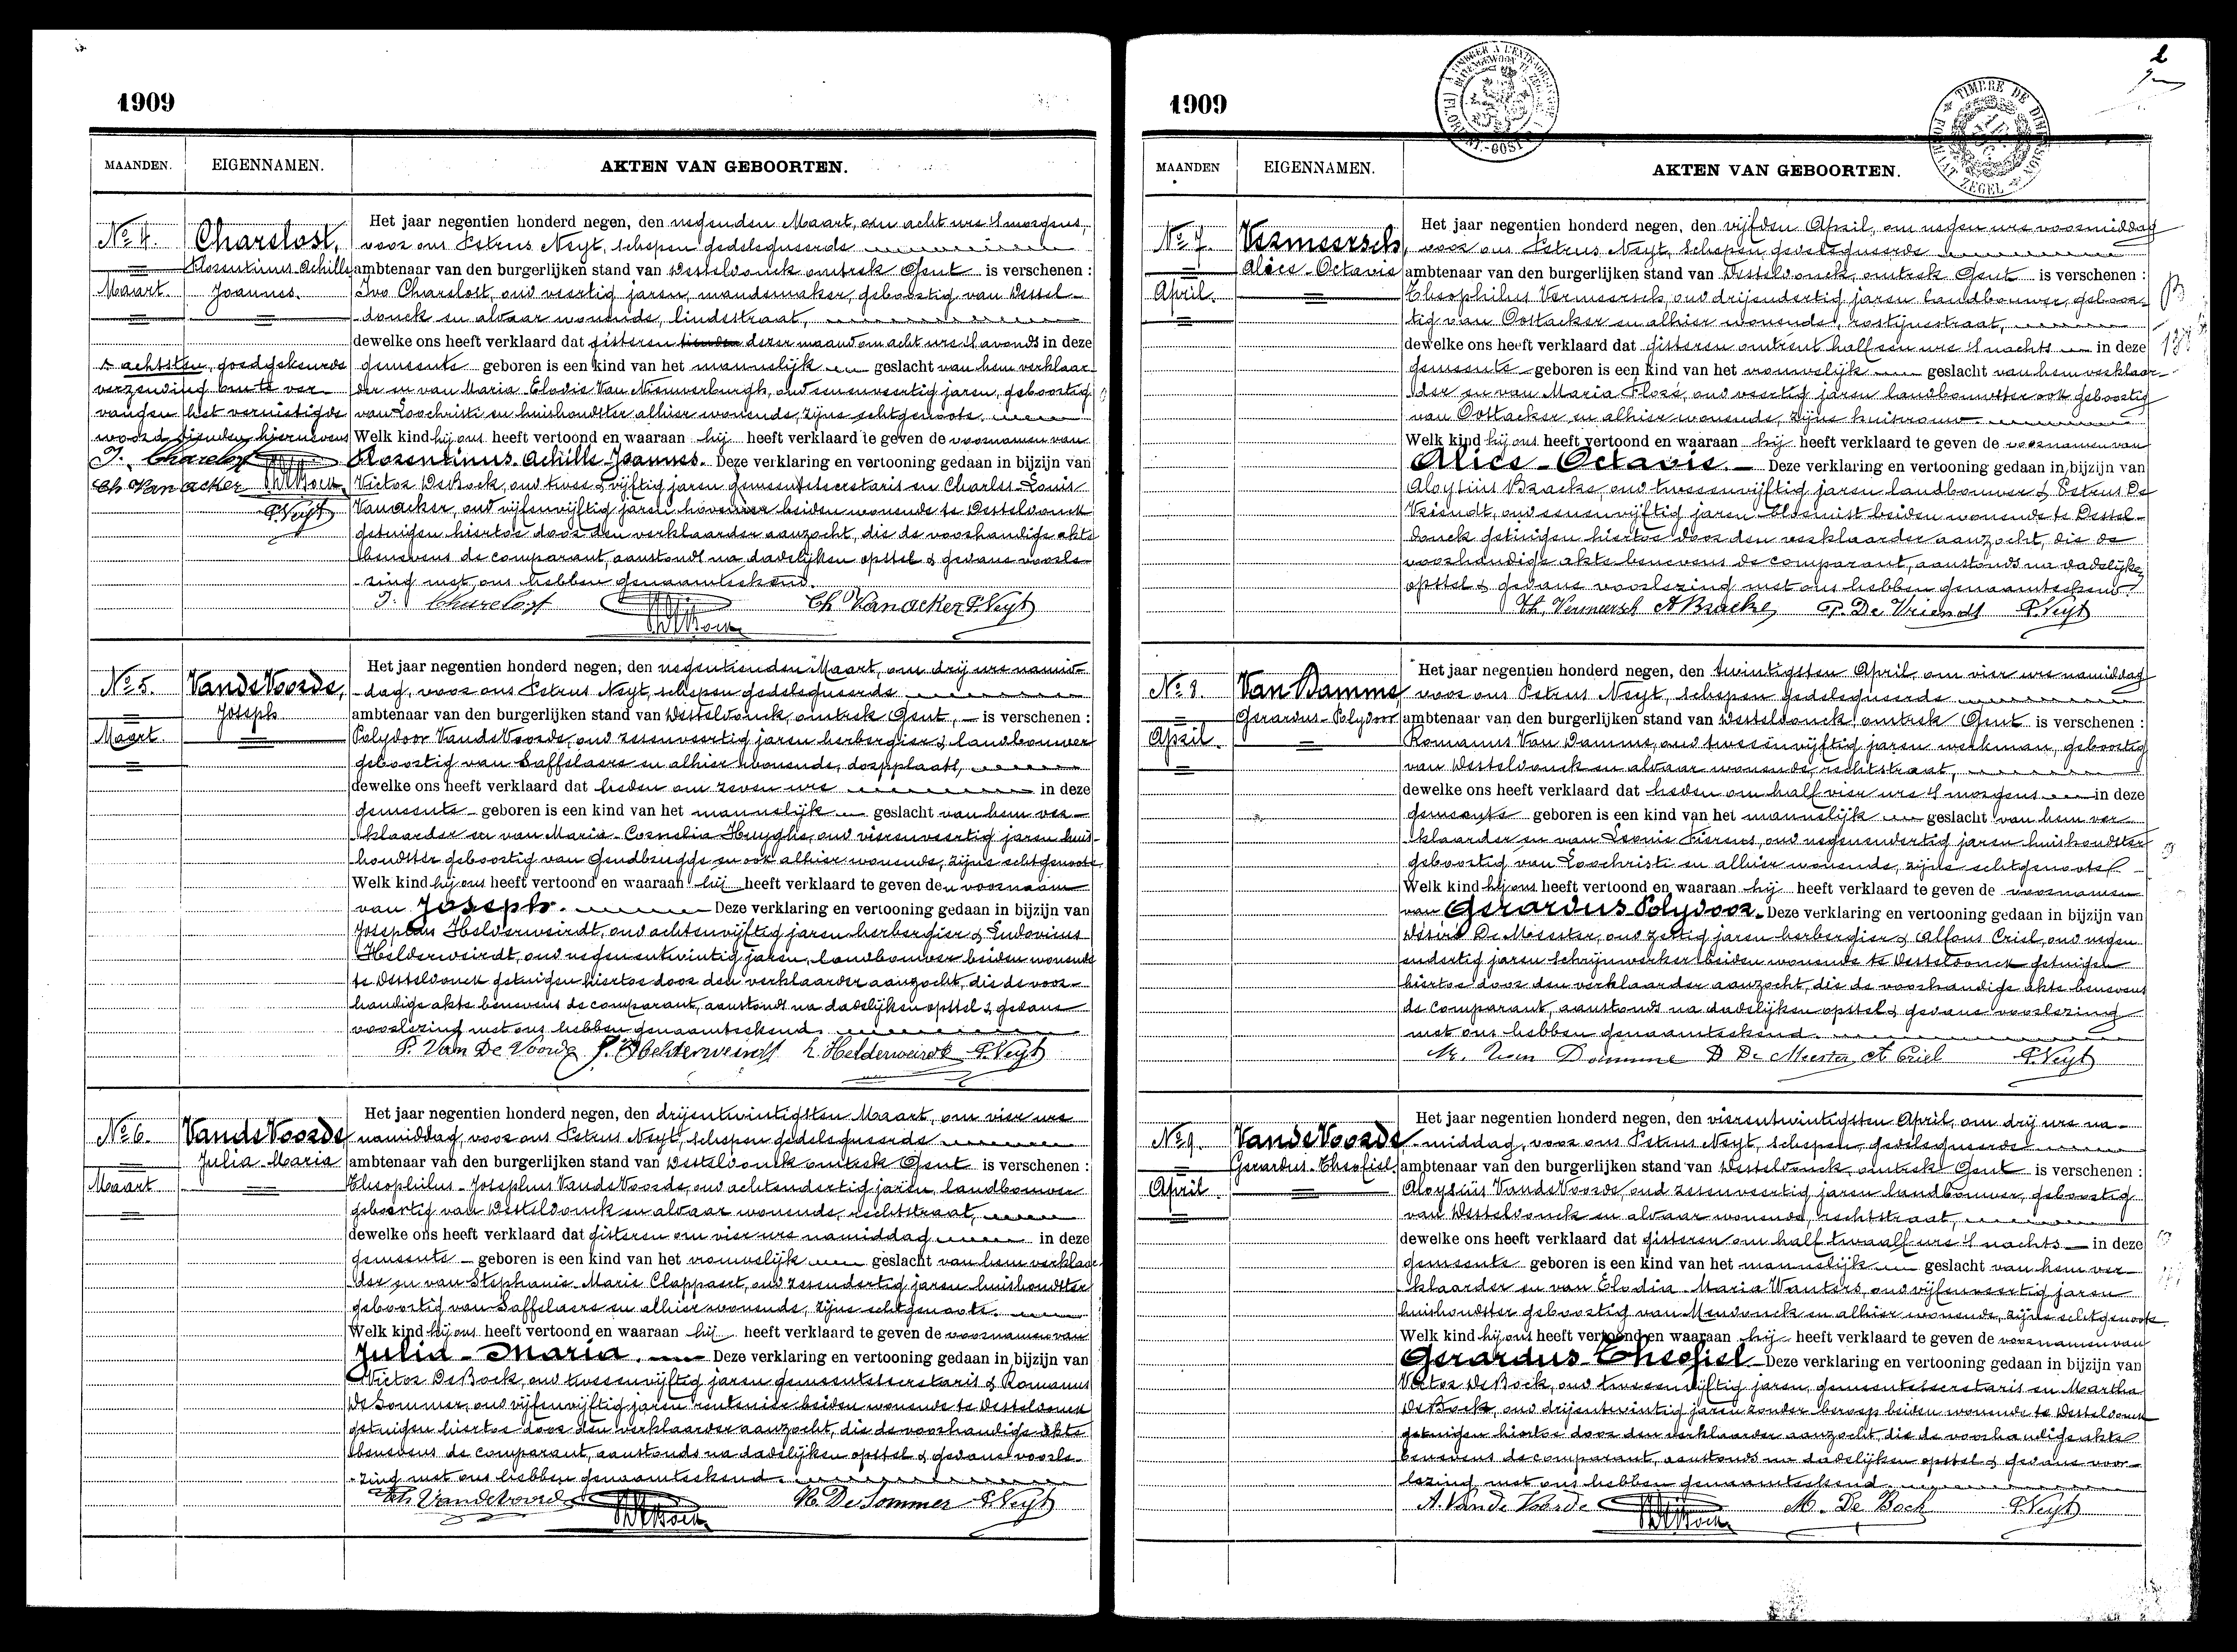 1909
MAANDEN. EIGENNAMEN. AKTEN VAN GEBOORTEN.
No 4. Charelost,
Rosentinus Achille
Joannes.
Maart.
Het jaar negentien honderd negen, den negenden Maart, om acht ure 's morgens,
voor ons Petrus Neyt, schepen gedelegueerde
ambtenaar van den burgerlijken stand van Desteldonck omtrek Gent is verschenen :
Ivo Charelost, oud veertig jaren, mandemaker, geboortig van Destel-
donck en aldaar wonende, lindestraat,
dewelke ons heeft verklaard dat gisteren tienden dezer maand om acht ure 's avonds in deze
gemeente geboren is een kind van het mannelijk geslacht van hem verklaar-
der en van Maria Elodie Van Nieuwerburgh, oud eenenveertig jaren, geboortig
van Loochristi en huishoudster alhier wonende, zijne echtgenoote.
Welk kind hij ons heeft vertoond en waaraan hij heeft verklaard te geven de voornamen van
Rosentinus Achille Joannes. Deze verklaring en vertooning gedaan in bijzijn van
Victor De Bock, oud twee & vijftig jaren gemeentesecretaris en Charles-Louis
Vanacker, oud vijfenvijftig jaren hovenier beiden wonende te Desteldonck
getuigen hiertoe door den verklaarder aanzocht, die de voorhandige akte
benevens de comparant, aanstonds na dadelijken opstel & gedane voorle-
zing met ons hebben genaamteekend.
I. Charelost Ch Vanacker P. Neyt
achtsten, goedgekeurde
verzending om te ver-
vangen het vernietigde
woord tienden hiernevens
I. Charelost
Ch Van acker
P. Neyt
No 5. Van de Voorde,
Joseph
Maart.
Het jaar negentien honderd negen, den negentienden Maart, om drij ure namid-
dag, voor ons Petrus Neyt, schepen gedelegueerde
ambtenaar van den burgerlijken stand van Desteldonck, omtrek Gent, is verschenen :
Polydoor Van de Voorde, oud zesenveertig jaren herbergier & landbouwer
geboortig van Saffelaere en alhier wonende, dorpplaats,
dewelke ons heeft verklaard dat heden om zeven ure in deze
gemeente geboren is een kind van het mannelijk geslacht van hem ver-
klaarder en van Maria-Cornelia Huyghe, oud vierenveertig jaren huis-
houdster geboortig van Gendbrugge en ook alhier wonende, zijne echtgenoote
Welk kind hij ons heeft vertoond en waaraan hij heeft verklaard te geven den voornaam
van Joseph. Deze verklaring en vertooning gedaan in bijzijn van
Josephus Helderweirdt, oud achtenvijftig jaren herbergier & Ludovicus
Helderweirdt, oud negenentwintig jaren, landbouwer beiden wonende
te Desteldonck getuigen hiertoe door den verklaarder aanzocht, die de voor-
handige akte benevens de comparant, aanstonds na dadelijken opstel & gedane
voorlezing met ons hebben genaamteekend.
P. Van De Voorde J. Helderweirdt L. Helderweirdt P. Neyt
No 6. Van de Voorde
Julia-Maria
Maart
Het jaar negentien honderd negen, den drijentwintigsten Maart, om vier ure
namiddag, voor ons Petrus Neyt, schepen gedelegueerde
ambtenaar van den burgerlijken stand van Desteldonck omtrek Gent is verschenen :
Theophilus-Josephus Van de Voorde, oud achtendertig jaren, landbouwer
geboortig van Desteldonck en aldaar wonende, rechtstraat,
dewelke ons heeft verklaard dat gisteren om vier ure namiddag in deze
gemeente geboren is een kind van het vrouwelijk geslacht van hem verklaar-
der en van Stephanie-Marie Clappaert, oud zesendertig jaren huishoudster
geboortig van Saffelaere en alhier wonende, zijne echtgenoote.
Welk kind hij ons heeft vertoond en waaraan hij heeft verklaard te geven de voornamen van
Julia-Maria. Deze verklaring en vertooning gedaan in bijzijn van
Victor De Bock, oud tweeenvijftig jaren gemeentesecretaris & Romanus
De Sommer, oud vijfenvijftig jaren rentenier beiden wonende te Desteldonck
getuigen hiertoe door den verklaarder aanzocht, die de voorhandige akte
benevens de comparant, aanstonds na dadelijken opstel & gedane voorle-
zing met ons hebben genaamteekend.
Th Vandevoorde R. De Sommer P. Neyt
1909
MAANDEN EIGENNAMEN. AKTEN VAN GEBOORTEN.
No 7. Vermeersch,
Alice-Octavie
April.
Het jaar negentien honderd negen, den vijfden April, om negen ure voormiddag
voor ons Petrus Neyt, schepen gedelegueerde
ambtenaar van den burgerlijken stand van Desteldonck, omtrek Gent is verschenen :
Theophilus Vermeersch, oud drijendertig jaren landbouwer, geboor-
tig van Oostacker en alhier wonende, rostijnestraat,
dewelke ons heeft verklaard dat gisteren omtrent half een ure 's nachts in deze
gemeente geboren is een kind van het vrouwelijk geslacht van hem verklaar-
der en van Maria Floré, oud veertig jaren landbouwster ook geboortig
van Oostacker en alhier wonende, zijne huisvrouw.
Welk kind hij ons heeft vertoond en waaraan hij heeft verklaard te geven de voornamen van
Alice-Octavie. Deze verklaring en vertooning gedaan in bijzijn van
Aloysius Bracke, oud tweeenvijftig jaren landbouwer & Petrus De
Vriendt, oud eenenvijftig jaren bloemist beiden wonende te Destel-
donck getuigen hiertoe door den verklaarder aanzocht, die de
voorhandige akte benevens de comparant, aanstonds na dadelijken
opstel & gedane voorlezing met ons hebben genaamteekend.
Th. Vermeersch A Bracke P. De Vriendt P. Neyt
No 8. Van Damme,
Gerardus-Polydoor
April.
Het jaar negentien honderd negen, den twintigsten April, om vier ure namiddag
voor ons Petrus Neyt, schepen gedelegueerde
ambtenaar van den burgerlijken stand van Desteldonck, omtrek Gent is verschenen :
Romanus Van Damme, oud tweeenvijftig jaren werkman, geboortig
van Desteldonck en aldaar wonende, rechtstraat,
dewelke ons heeft verklaard dat heden om half vier ure 's morgens in deze
gemeente geboren is een kind van het mannelijk geslacht van hem ver-
klaarder en van Leonie Pierens, oud negenendertig jaren huishoudster
geboortig van Loochristi en alhier wonende, zijne echtgenoote
Welk kind hij ons heeft vertoond en waaraan hij heeft verklaard te geven de voornamen
van Gerardus Polydoor. Deze verklaring en vertooning gedaan in bijzijn van
Désiré De Meester, oud zestig jaren herbergier & Alfons Criel, oud negen
endertig jaren schrijnwerker beiden wonende te Desteldonck getuigen
hiertoe door den verklaarder aanzocht, die de voorhandige akte benevens
de comparant, aanstonds na dadelijken opstel & gedane voorlezing
met ons hebben genaamteekend.
Van Damme D De Meester A Criel P. Neyt
No 9. Van de Voorde
Gerardus-Theofiel
April.
Het jaar negentien honderd negen, den vierentwintigsten April, om drij ure na-
middag, voor ons Petrus Neyt, schepen, gedelegueerde
ambtenaar van den burgerlijken stand van Desteldonck omtrek Gent is verschenen :
Aloysius Van de Voorde, oud zesenveertig jaren landbouwer, geboortig
van Desteldonck en aldaar wonende, rechtstraat,
dewelke ons heeft verklaard dat gisteren om half twaalf ure 's nachts in deze
gemeente geboren is een kind van het mannelijk geslacht van hem ver-
klaarder en van Elodia-Maria Wauters, oud vijfenveertig jaren
huishoudster geboortig van Mendonck en alhier wonende, zijne echtgenoote.
Welk kind hij ons heeft vertoond en waaraan hij heeft verklaard te geven de voornamen van
Gerardus-Theofiel Deze verklaring en vertooning gedaan in bijzijn van
Victor De Bock, oud tweeenvijftig jaren, gemeentesecretaris en Martha
De Bock, oud drijentwintig jaren zonder beroep beiden wonende te Desteldonck
getuigen hiertoe door den verklaarder aanzocht, die de voorhandige akte
benevens de comparant, aanstonds na dadelijken opstel & gedane voor-
lezing met ons hebben genaamteekend.
A. Van de Voorde M. De Bock P. Neyt